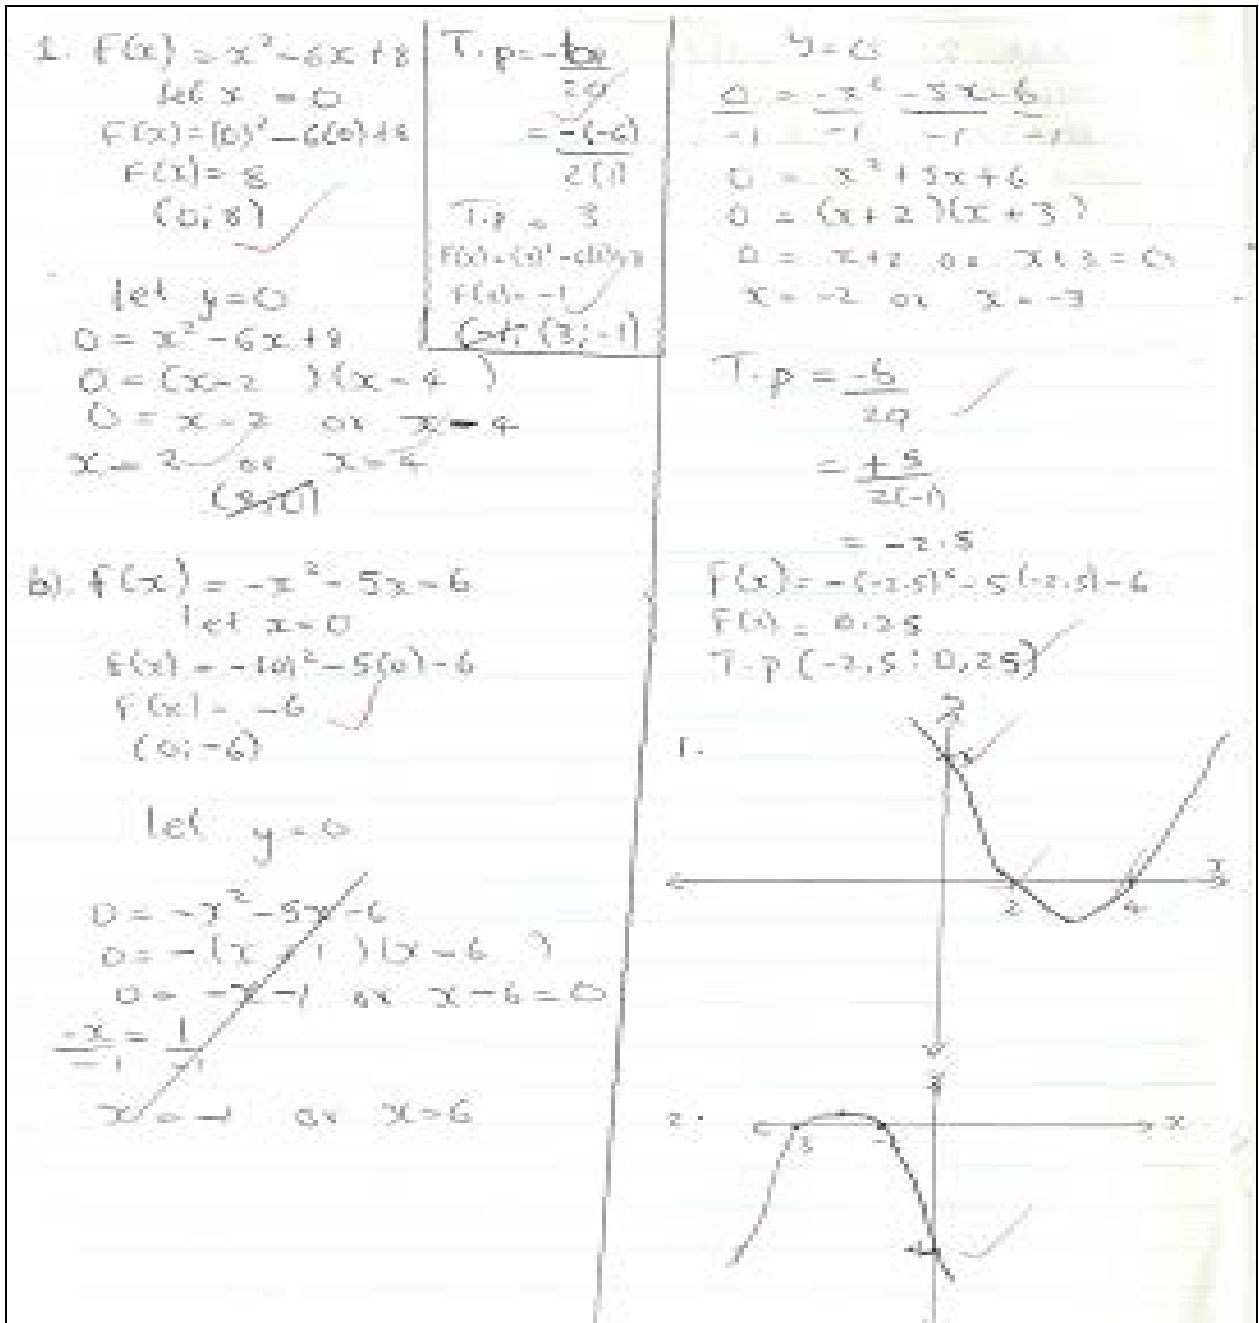 1. F(x) = x² - 6x + 8
let x = 0
F(x) = (0)² - 6(0) + 8
F(x) = 8
(0; 8)
let y = 0
0 = x² - 6x + 8
0 = (x - 2 )(x - 4 )
0 = x - 2 or x - 4
x = 2 or x = 4
T.p = -b
2a
= -(-6)
2(1)
T.p = 3
F(x) = -1
(3; -1)
b). F(x) = -x² - 5x - 6
let x = 0
F(x) = -(0)² - 5(0) - 6
F(x) = -6
(0; -6)
let y = 0
0 = -x² - 5x - 6
0 = -(x + 1 )(x - 6 )
0 = -x - 1 or x - 6 = 0
-x = 1
-1 -1
x = -1 or x = 6
y = 0
0 = -x² - 5x - 6
-1 -1 -1 -1
0 = x² + 5x + 6
0 = (x + 2)(x + 3)
0 = x + 2 or x + 3 = 0
x = -2 or x = -3
T.p = -b
2a
= +5
2(-1)
= -2.5
F(x) = -(-2.5)² - 5(-2.5) - 6
F(x) = 0.25
T.p (-2,5 ; 0,25)
1.
x
2 4
2.
x
3